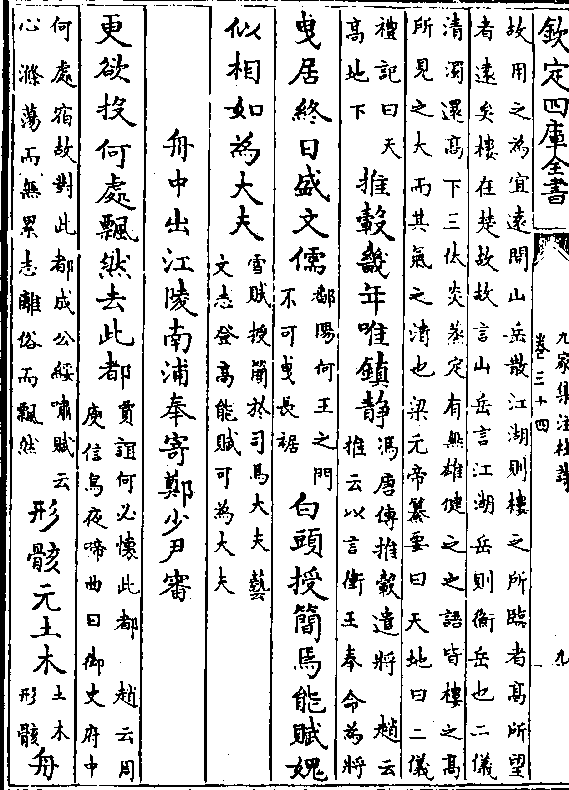 欽定四庫全書
九家集注杜詩
卷三十四
九
故用之為宜遠聞山岳散江湖則樓之所臨者髙所望
者遠矣樓在楚故故言山岳言江湖岳則衡岳也二儀
清濁還髙下三伏炎蒸定有無雄健之之語皆樓之髙
所見之大而其氣之清也梁元帝纂要曰天地曰二儀
禮記曰天
髙地下
推轂幾年唯鎮静
馮唐傳推轂遣將 趙云
推云以言衛王奉命為將
曳居終日盛文儒
鄒陽何王之門
不可曳長裾
白頭授簡焉能賦媿
似相如為大夫
雪賦授簡於司馬大夫藝
文志登髙能賦可為大夫
舟中出江陵南浦奉寄鄭少尹審
更欲投何處飄然去此都
賈誼何必懷此都 趙云周
庾信烏夜啼曲曰御史府中
何處宿故對此都成公綏嘯賦云
心滌蕩而無累志離俗而飄然
形骸元土木
土木
形骸
舟